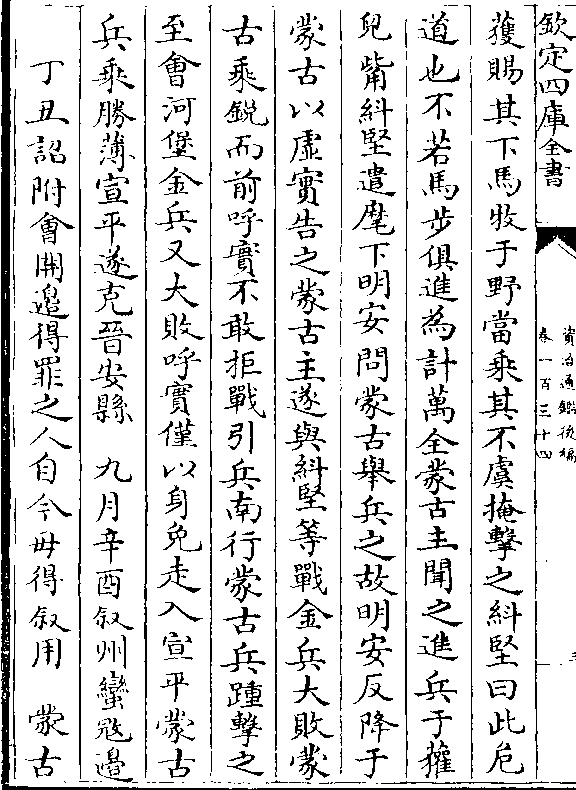 欽定四庫全書
資治通鑑後編
卷一百三十四
獲賜其下馬牧于野當乘其不虞掩擊之糾堅曰此危
道也不若馬步俱進為計萬全蒙古主聞之進兵于獾
兒觜糾堅遣麾下明安問蒙古舉兵之故明安反降于
蒙古以虛實告之蒙古主遂與糾堅等戰金兵大敗蒙
古乘鋭而前呼實不敢拒戰引兵南行蒙古兵踵擊之
至會河堡金兵又大敗呼實僅以身免走入宣平蒙古
兵乘勝薄宣平遂克晉安縣　九月辛酉叙州蠻冦邉
丁丑詔附會開邉得罪之人自今毋得叙用　蒙古